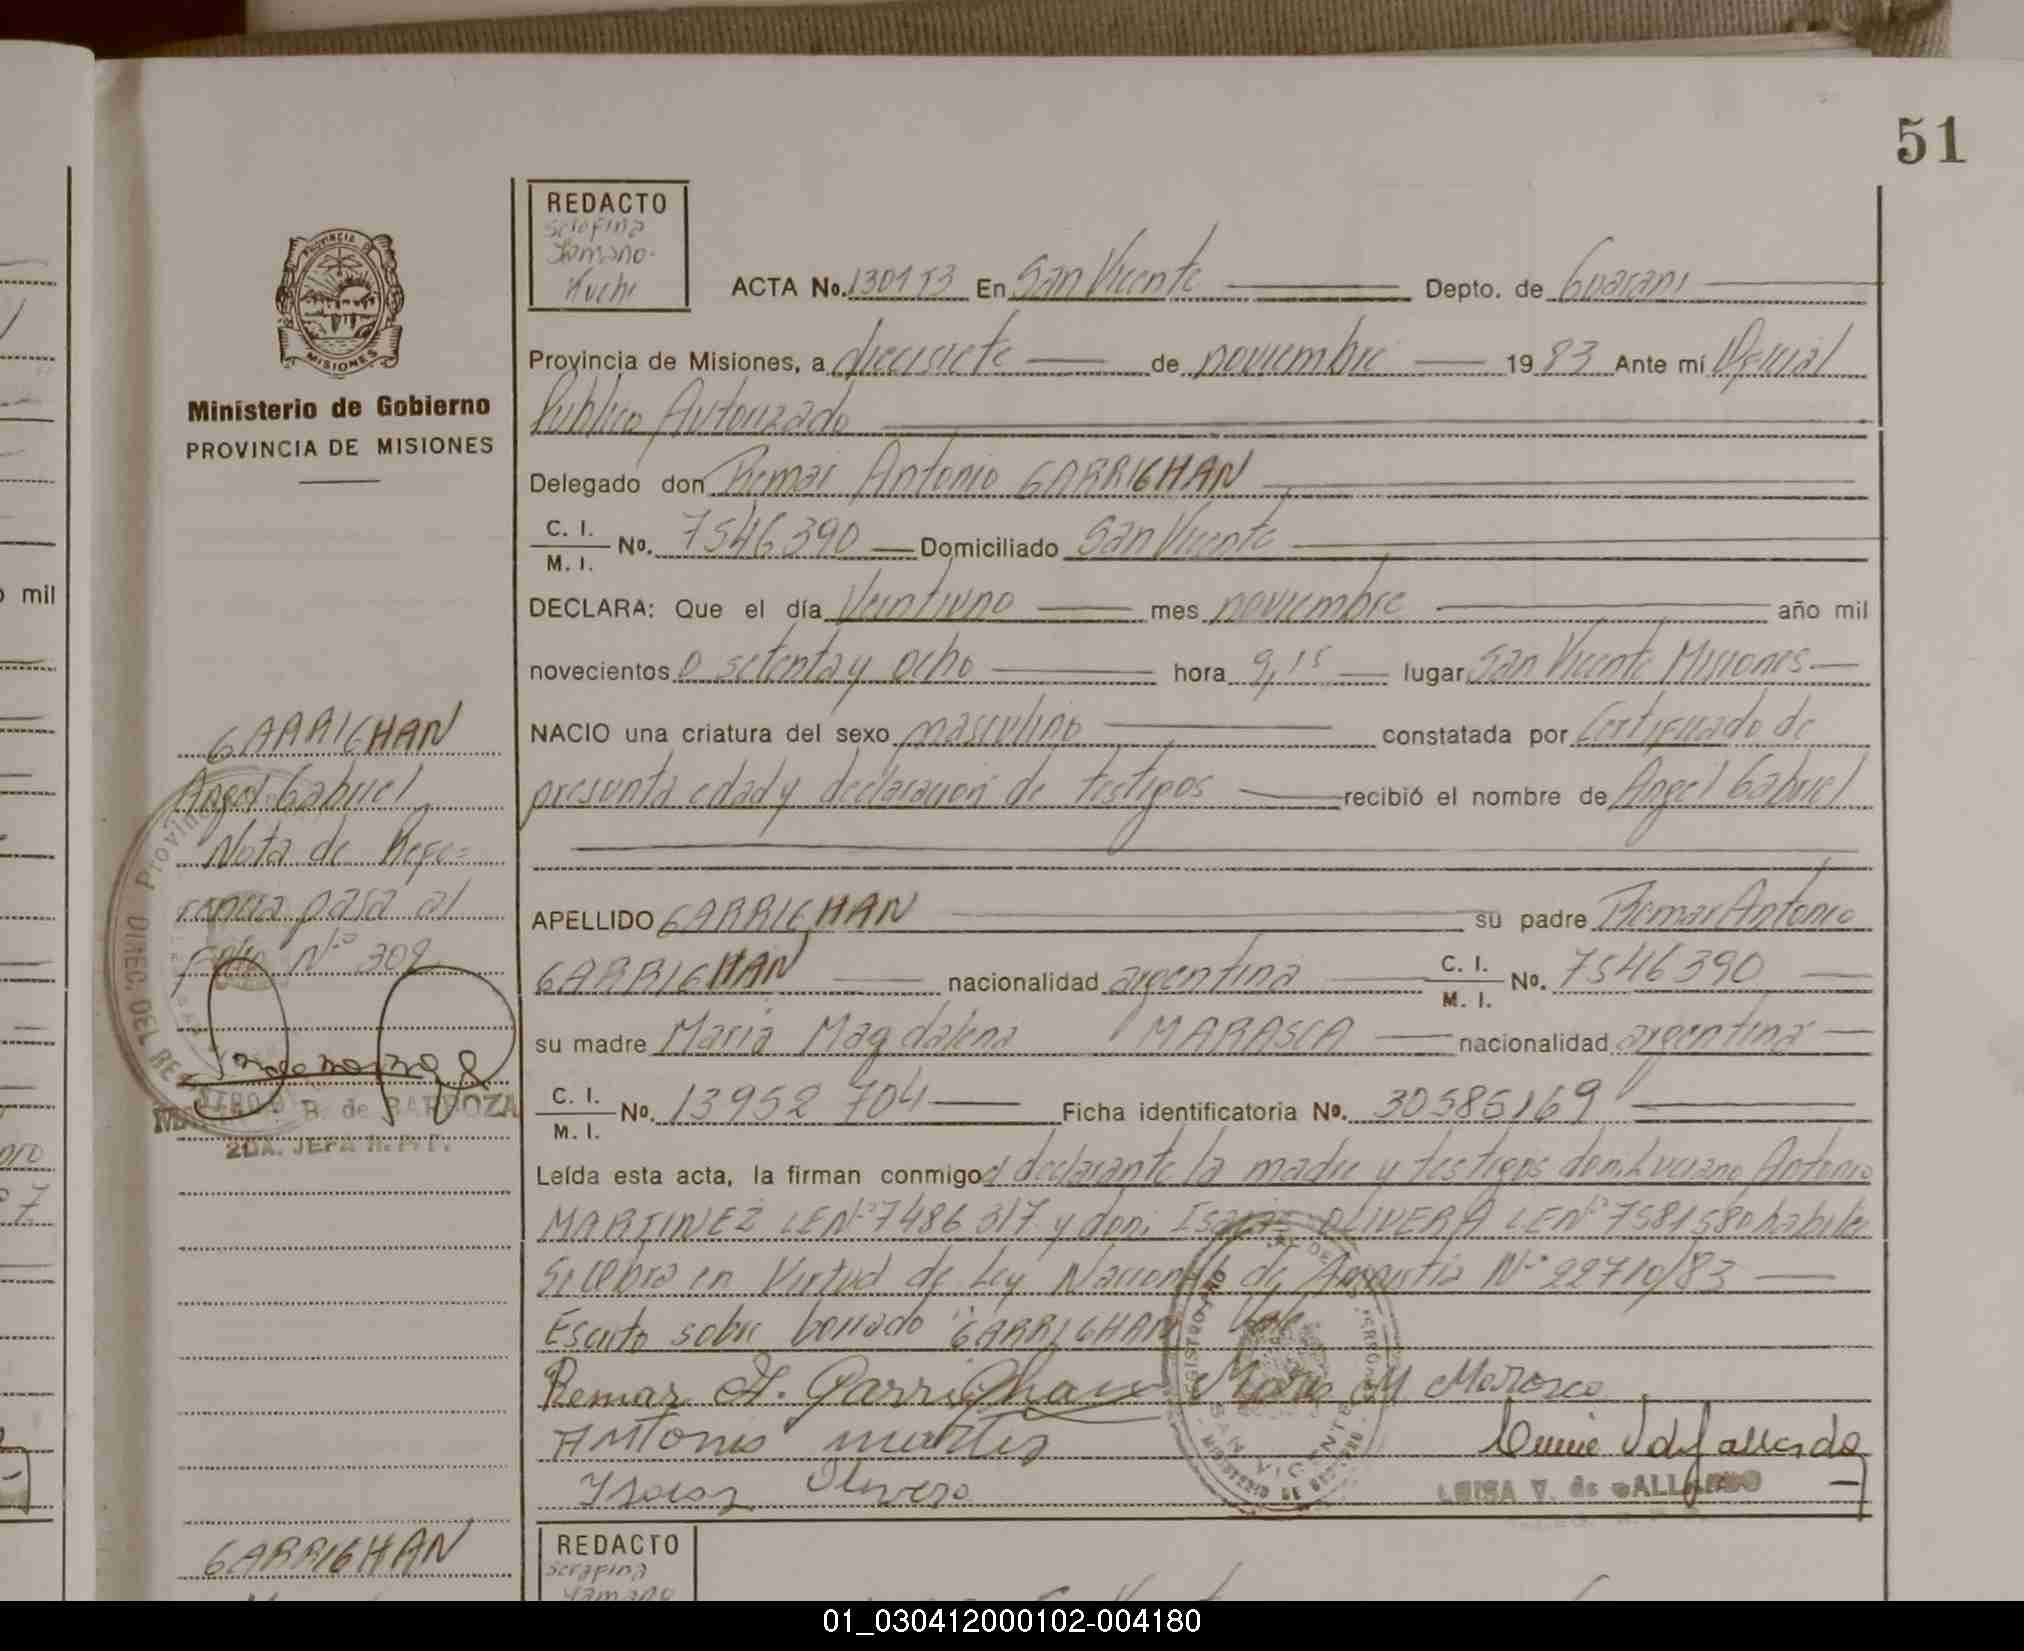 51
REDACTO
Serafina
Yamano
ACTA No. 130153 En San Vicente Depto. de Guarani
Provincia de Misiones, a diecisiete de noviembre 1983 Ante mí Oficial
Publico Autorizado
Delegado don Remar Antonio GARRIGHAN
C. I. / M. I. No. 7546390 Domiciliado San Vicente
DECLARA: Que el día Veintiuno mes noviembre año mil
novecientos setenta y ocho hora 9,15 lugar San Vicente Misiones
NACIO una criatura del sexo masculino constatada por Certificado de
presunta edad y declaracion de testigos recibió el nombre de Angel Gabriel
APELLIDO GARRIGHAN su padre Remar Antonio
GARRIGHAN nacionalidad argentina C. I. / M. I. No. 7546390
su madre Maria Magdalena MARASCA nacionalidad argentina
C. I. / M. I. No. 13952704 Ficha identificatoria No. 30585169
Leída esta acta, la firman conmigo el declarante la madre y testigos don Luciano Antonio
MARTINEZ LE Nº 7486317 y don Isaias OLIVERA LE Nº 7581580 habiles
Se labra en Virtud de Ley Nacional de Amnistia Nº 22710/83
Escrito sobre borrado "GARRIGHAN" Vale
Remar A. Garrighan Maria M Marasca
Antonio
Olivera
LUISA V. de GALLARDO
PROVINCIA D
MISIONES
Ministerio de Gobierno
PROVINCIA DE MISIONES
GARRIGHAN
Angel Gabriel
Nota de Refe=
rencia pasa al
folio Nº 302
B. de BARBOZA
2DA. JEFA
GARRIGHAN
REDACTO
Serafina
Yamano
o mil
01_030412000102-004180